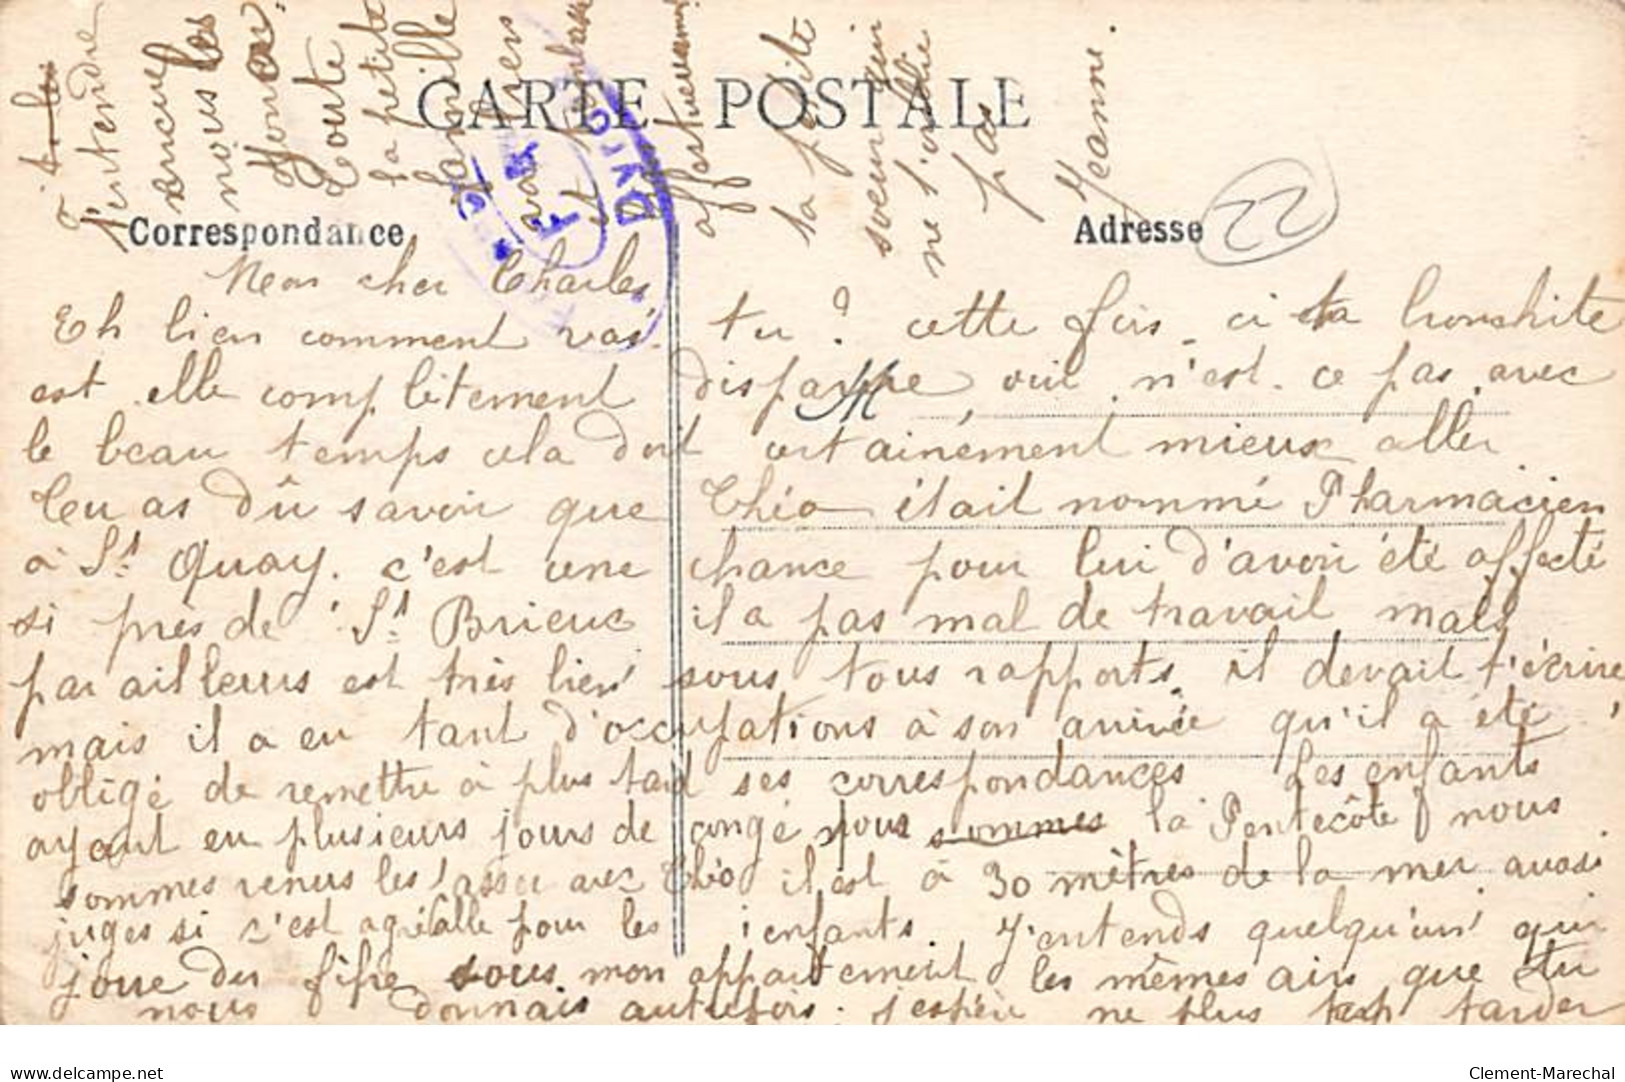 CARTE POSTALE
Correspondance
Adresse
22
Mon cher Charles
Eh bien comment vas tu ? cette fois-ci ta bronchite
est elle complètement disparue oui n'est-ce pas, avec
le beau temps cela doit certainement mieux aller
Tu as dû savoir que Théo était nommé Pharmacien
à St Quay. c'est une chance pour lui d'avoir été affecté
si près de St Brieuc il a pas mal de travail mais
par ailleurs est très bien sous tous rapports. il devait t'écrire
mais il a eu tant d'occupations à son arrivée qu'il a été
obligé de remettre à plus tard ses correspondances Les enfants
ayant eu plusieurs jours de congé pour la Pentecôte nous
sommes venus les passer avec Théo il est à 30 mètres de la mer aussi
juges si c'est agréable pour les enfants. J'entends quelqu'un qui
joue du fifre sous mon appartement les mêmes airs que tu
nous donnais autrefois. j'espère ne plus trop tarder
à
t'entendre
encore
nous les
jouer
Toute
la petite
famille
va bien
et t'embrasse
affectueusement
ta petite
soeur qui
ne t'oublie
pas
Jeanne.
www.delcampe.net
Clement-Marechal